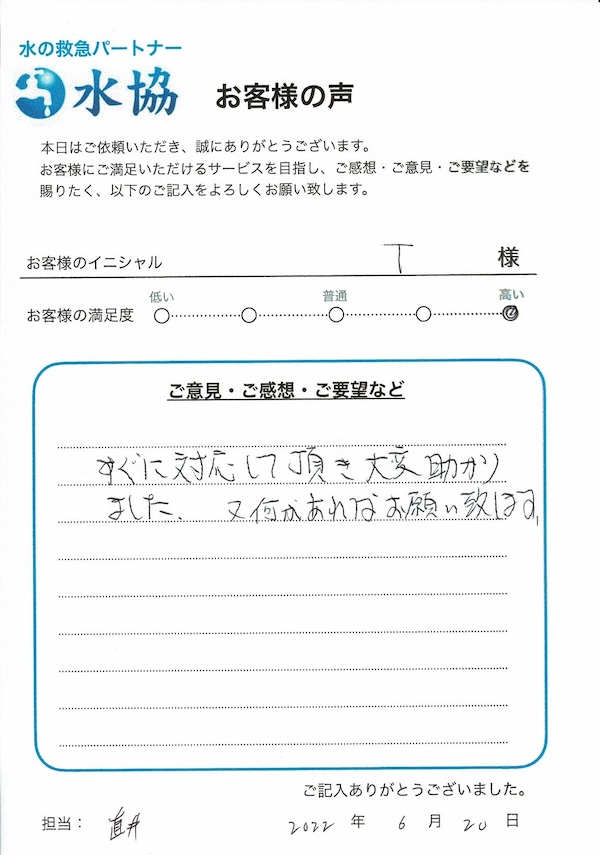 水の救急パートナー
水協
お客様の声
本日はご依頼いただき、誠にありがとうございます。
お客様にご満足いただけるサービスを目指し、ご感想・ご意見・ご要望などを
賜りたく、以下のご記入をよろしくお願い致します。
お客様のイニシャル T 様
低い 普通 高い
お客様の満足度
ご意見・ご感想・ご要望など
すぐに対応して頂き大変助かり
ました、又何かあればお願い致します,
ご記入ありがとうございました。
担当： 直井 2022 年 6 月 20 日